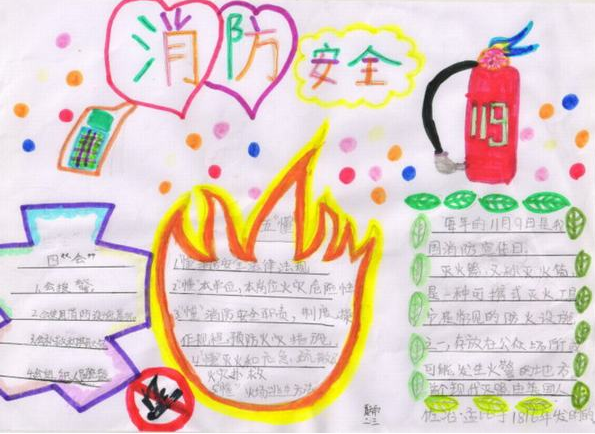 消防安全
119
四“会”
1.会报警
五“懂”
1.懂消防安全法律法规
2.懂本单位,本岗位火灾危险性
3.懂消防安全职责,制度,操
作规程,预防火灾措施
4.懂灭火和应急疏散
火灾扑救
5.懂火场逃生方法
每年的11月9日是我
国消防宣传日.
灭火器,又称灭火筒,
是一种可携式灭火工具
它是常见的防火设施
之一,存放在公众场所或
可能发生火警的地方
首个现代灭火器由英国人
佐治·孟比于1816年发明的